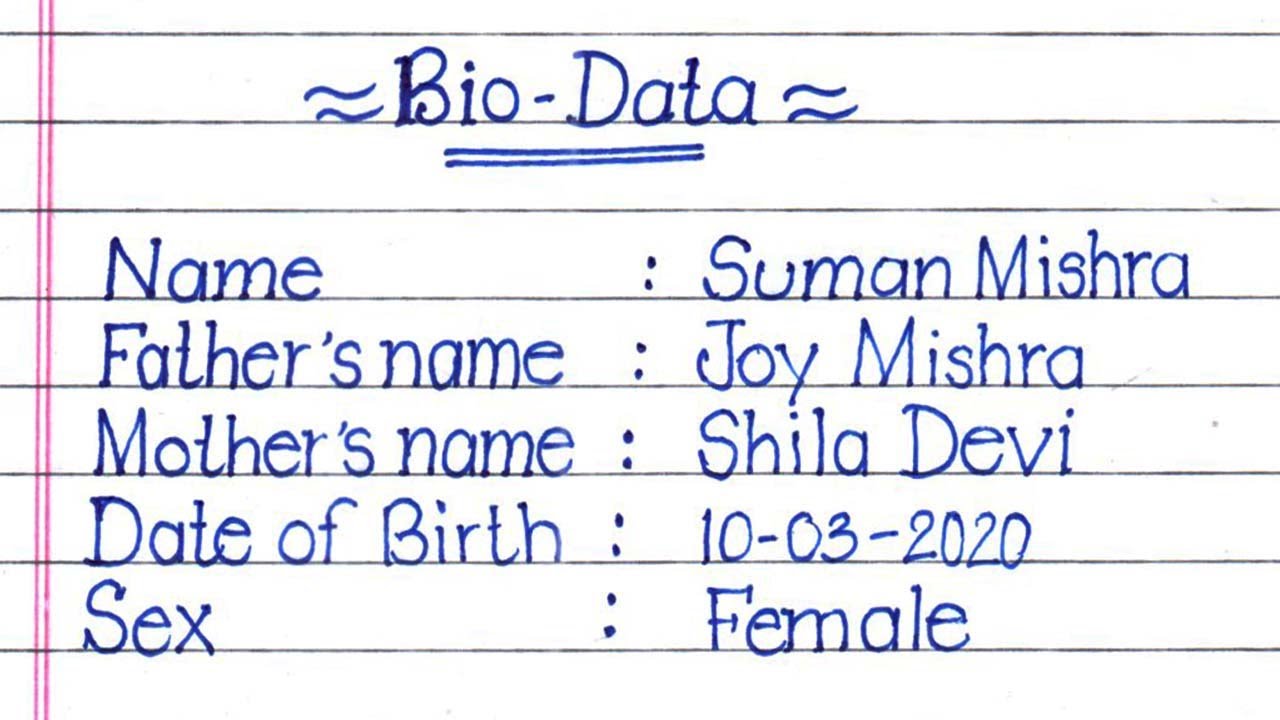 ≈ Bio-Data ≈
Name : Suman Mishra
Father's name : Joy Mishra
Mother's name : Shila Devi
Date of Birth : 10-03-2020
Sex : Female